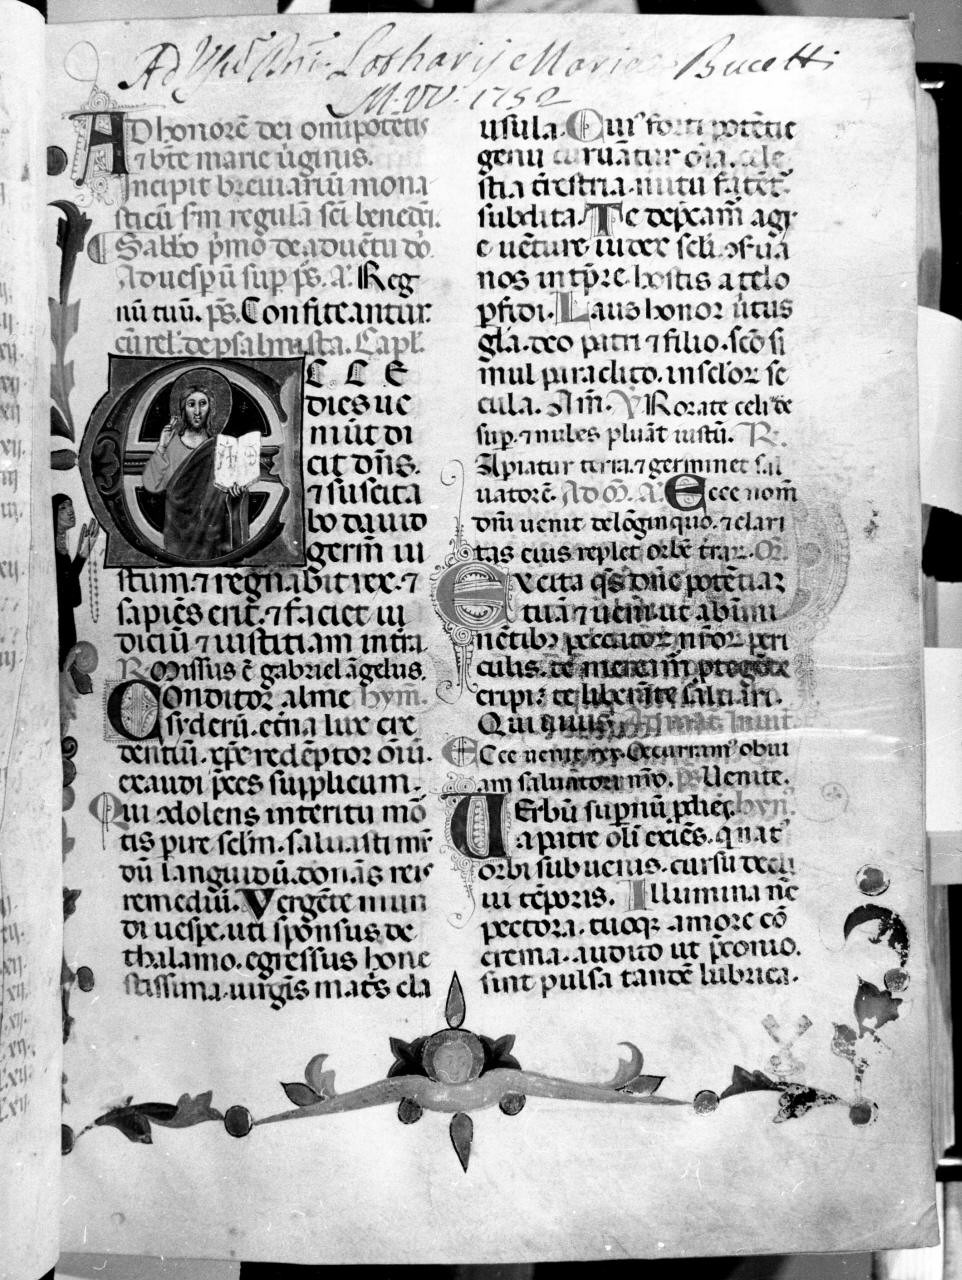 Ad Usũ Dñi Lotharij Mariae Bucetti
1752
AD honorẽ dei omĩpotẽtis
⁊ bẽte marie ũginis.
Incipit breuiariũ mona
sticũ s̃m regulã sc̃i benedc̃i.
Sabbo p̃mo de aduẽtu dñi
Ad uesp̃ũ sup p̃s. A. Reg
nũ tuũ. p̃s. Confiteantur.
cũ rel̃. de psalmista. Capl̃.
ECCE
dies ue
niũt di
cit dñs.
⁊ suscita
bo dauid
germ̃ iu
stum. ⁊ regnabit rex. ⁊
sapiẽs erit. ⁊ faciet iu
diciũ ⁊ iustitiam in tr̃a.
R. Missus ẽ gabriel ãgelus.
Conditor alme hym̃.
syderũ. etñа lux cre
dentiũ. xp̃e redẽptor oĩũ.
exaudi p̃ces supplicum.
Qui ↄdolens interitu mõ
tis pire sclm̃. saluasti mũ
dũ languidũ. donãs reis
remediũ. Vergẽte mun
di uespe. uti spõnsus de
thalamo. egressus hone
stissima. uirgĩs mat̃s cla
usula. Cuiꝰ forti potẽtie
genu curuãtur oĩa. cele
stia t̃restria. nutu fatẽt̃.
subdita. Te dep̃cam̃ agi
e uẽture iudex scl̃i. ↄsẽua
nos in tp̃re. hostis a telo
ꝑfidi. Laus honor uĩtus
gl̃a. deo patri ⁊ filio. sc̃o si
mul paraclito. in sclor̃ se
cula. Am̃. V. Rorate celi de
sup. ⁊ nubes pluãt iustũ. R.
Apiatur terra. ⁊ germinet sal
uatorẽ. Ad M̃. A. Ecce nom̃
dñi uenit de lõginquo. ⁊ clari
tas eius replet orbẽ trar̃. Or̃.
Excita qs̃ dñe potẽtiaz
tuã ⁊ ueni. ut ab imi
nẽtibꝫ peccator̃ nr̃or̃ peri
culis. te mereãm̃ ptegẽte
eripi. ⁊ te liberãte saluari.
Qui uiuis. Ad mat̃. Inuit̃
Ecce uenit rex. Occurramꝰ obui
am saluatori nr̃o. p̃s. Uenite.
Uerbũ supnũ pdiẽs. hyñ.
a patre oli exiẽs. q̃ nat̃
orbi subuenis. cursu decli
ui tẽporis. Illumina nẽ
pectora. tuoq̃ amore cõ
crema. audito ut p̃conio.
sint pulsa tandẽ lubrica.